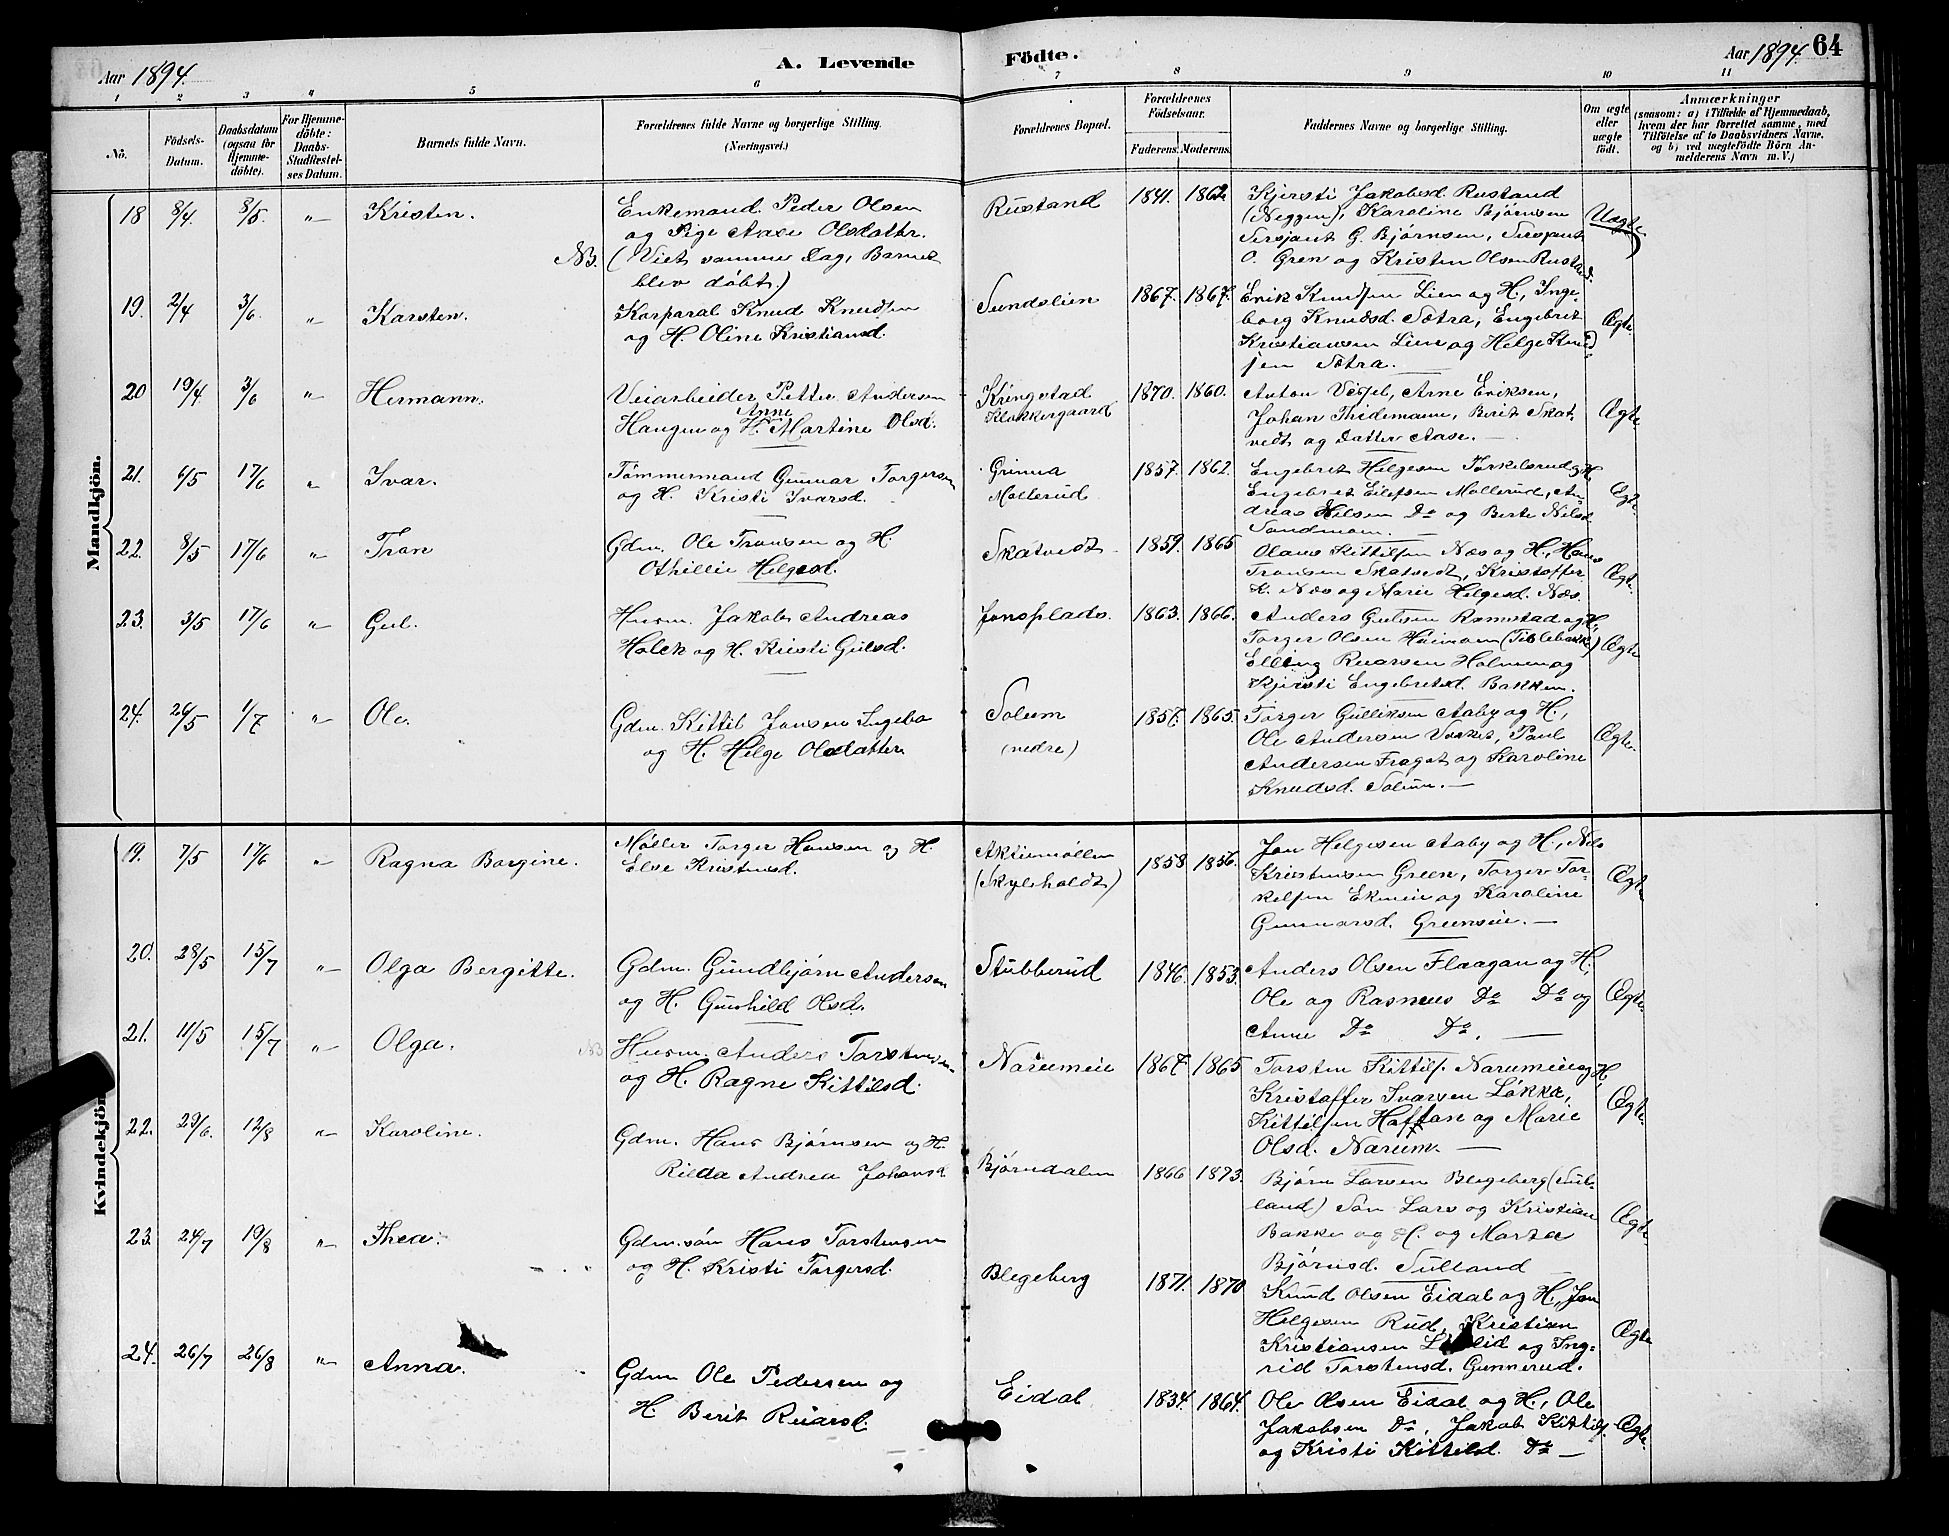 Aar 1894. A. Levende Födte. Aar 1894. 64
1 2 3 4 5 6 7 8 9 10 11
No. Födsels-Datum. Daabsdatum (ogsaa for Hjemme-döbte). For Hjemme-döbte: Daabs-Stadfæstel-ses Datum. Barnets fulde Navn. Forældrenes fulde Navne og borgerlige Stilling. (Næringsvei.) Forældrenes Bopæl. Forældrenes Födselsaar. Faderens. Moderens. Faddernes Navne og borgerlige Stilling. Om ægte eller uægte födt. Anmærkninger (saasom: a) i Tilfælde af Hjemmedaab, hvem der har forrettet samme, med Tilföielse af to Daabsvidners Navne, og b) ved uægtefödte Börn An-melderens Navn m. V.)
Mandkjön.
18 8/4. 8/5. " Kristen. Enkemand Peder Olsen Rustand 1841. 1862 Kjersti Jakobsd. Rustand Uægte
og Pige Aase Olsdattr. (Neggen), Karoline Bjørnsen
NB. (Viet samme Dag, Barnet Sersjant G. Bjørnsen, Sersjant
blev døbt.) O. Gren og Kristen Olsen Rustad.
19. 2/4 3/6. " Karsten. Korporal Knud Knudsen Sundslien 1867. 1867. Erik Knudsen Lien og H., Inge- Ægte.
og H. Oline Kristiansd. borg Knudsd. Sætra, Engebret
Kristiansen Lien og Helge Knud-
sen Sætra.
20 19/4 3/6 " Hermann. Veiarbeider Petter Andersen Kringstad 1870. 1860. Anton Vessel, Arne Eriksen, Ægte
Haugen og H. Anne Martine Olsd. Klokkergaard Johan Thidemann, Berit Skat-
vedt og Datter Aase.
21. 6/5 17/6 " Ivar. Tømmermand Gunnar Torgersen Grinna 1857. 1862. Engebret Helgesen Torkelsrud og H. Ægte.
og H. Kristi Ivarsd. Møllerud. Engebret Eilefsen Møllerud, An-
dreas Helsen Do og Berte Nilsd.
Sandmoen.
22. 8/5 17/6 " Tron Gdm. Ole Tronsen og H. Skatvedt 1859. 1865 Olaus Kittilsen Næs og H., Hans Ægte.
Othillie Helgesd. Tronsen Skatvedt, Kristoffer
K. Næs og Marie Helgesd. Næs.
23. 3/5 17/6 " Gul. Husm. Jakob Andreas Jonsplads. 1863. 1866. Anders Gulsen Ramstad og H., Ægte
Holck og H. Kristi Gulsd. Torger Olsen
Elling Ruarsen Holmen og
Kjersti Engebretsd. Bakken.
24. 26/5 1/7 " Ole. Gdm. Kittil Jonsen Ingebo Solum 1857. 1865. Torger Gulliksen Aaby og H., Ægte.
og H. Helge Olsdatter (nedre) Ole Andersen Vaket, Paul
Andersen Fragot og Karoline
Knudsd. Solum.
Kvindekjön.
19. 7/5 17/6 " Ragna Borgine. Møller Torger Hansen og H. Aktiemøllen 1858 1856. Jon Helgesen Aaby og H., Nils Ægte
Else Kristensd. (Skyleholdt) Kristensen Green, Torger Tor-
kelsen Ekneie og Karoline
Gunnarsd. Greenseie.
20. 28/5 15/7 " Olga Bergitte. Gdm. Gundbjørn Andersen Stubberud 1846. 1853. Anders Olsen Flaagan og H. Ægte.
og H. Gunhild Olsd. Ole og Rasmus Do Do og
Anne Do Do.
21. 11/5 15/7 " Olga. NB Husm. Anders Torstensen Narumeie 1867. 1865 Torsten Kittils. Narumeie og H. Ægte.
og H. Ragne Kittilsd. Kristoffer Ivarsen Løkka,
Kittilsen Haftan og Marie
Olsd. Narum.
22. 29/6. 12/8 " Karoline. Gdm. Hans Bjørnsen og H. Bjørndalen 1866 1873. Bjørn Larsen Blegeberg (Sul- Ægte.
Rilda Andrea Johansd. land) Søn Lars og Kristian
Bakke og H. og Marta
Bjørnsd. Sulland
23. 24/7 19/8 " Thea. Gdm.søn Hans Torstensen Blegeberg 1871. 1870 Knud Olsen Eidal og H., Jon Ægte
og H. Kristi Torgersd. Helgesen Rud, Kristian
Kristiansen og Ing-
rid Torstensd. Gunnerud.
24. 26/7 26/8 " Anna. Gdm Ole Pedersen og Eidal 1834. 1864. Ole Olsen Eidal og H., Ole Ægte
H. Berit Ruarsd. Jakobsen Do, Jakob Kittils.
og Kristi Kittilsd. Do